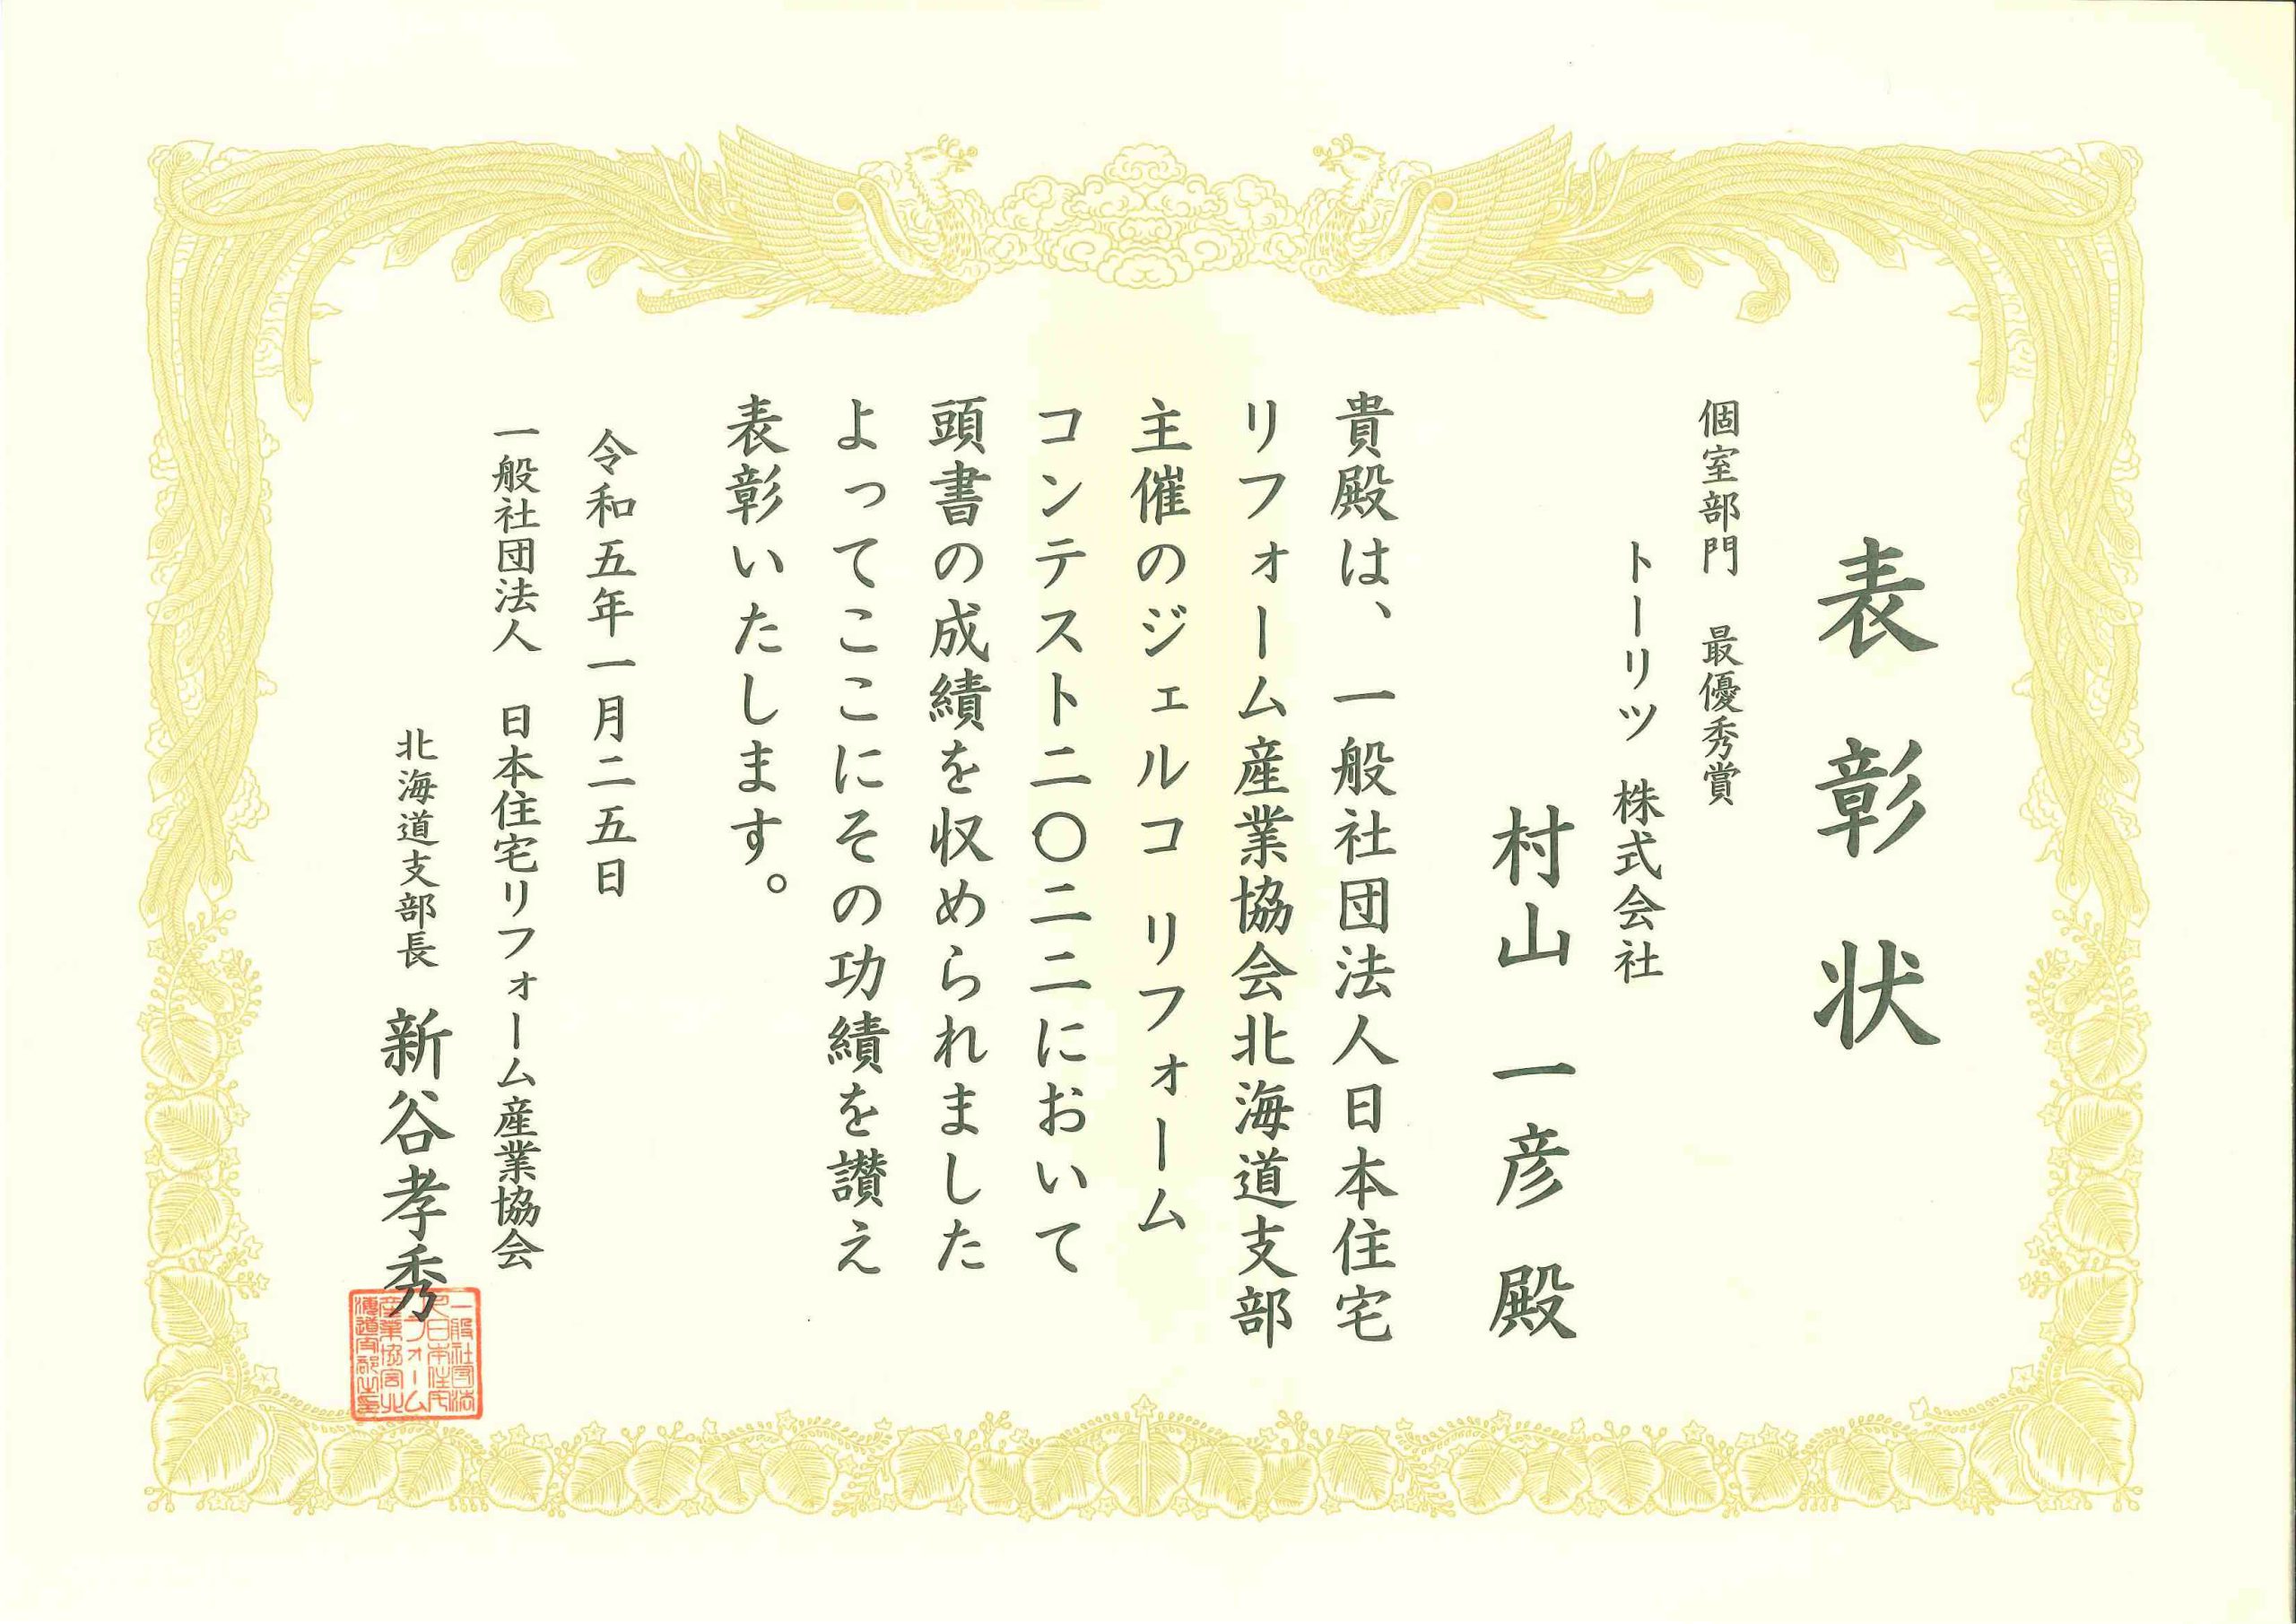 表彰状
個室部門　最優秀賞
トーリツ 株式会社
村山 一彦 殿
貴殿は、一般社団法人日本住宅
リフォーム産業協会北海道支部
主催のジェルコ リフォーム
コンテスト二〇二二において
頭書の成績を収められました
よってここにその功績を讃え
表彰いたします。
令和五年一月二五日
一般社団法人　日本住宅リフォーム産業協会
北海道支部長　新谷孝秀